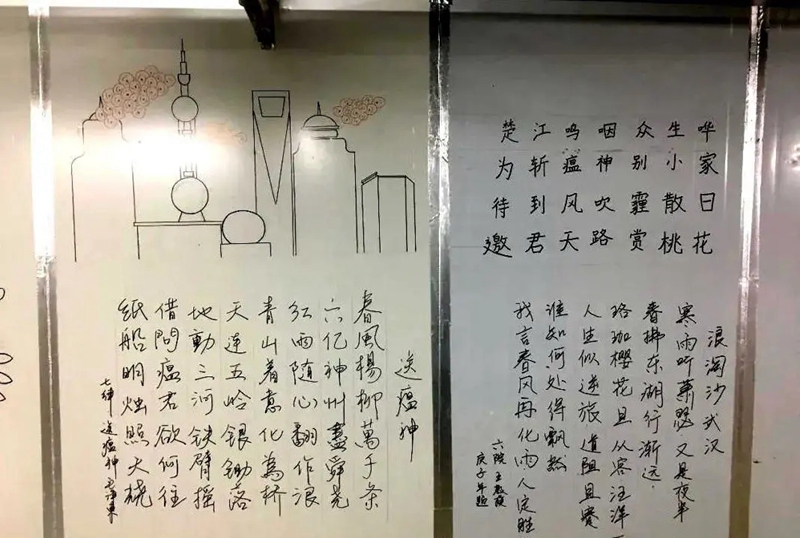 楚江呜咽众生哗
为斩瘟神别小家
待到风吹霾散日
邀君天路赏桃花
浪淘沙武汉
寒雨听萧瑟又是夜半
春拂东湖行渐远
珞珈樱花且从寒汪洋
人生似逆旅道阻且
谁知何处得飘然
我言春风再化雨人定胜
六院王
庚子年题
送瘟神
春風楊柳萬千条
六亿神州盡舜尧
红雨随心翻作浪
青山着意化為桥
天连五岭银锄落
地動三河铁臂摇
借問瘟君欲何往
纸船明烛照天烧
七律 送瘟神 毛泽东